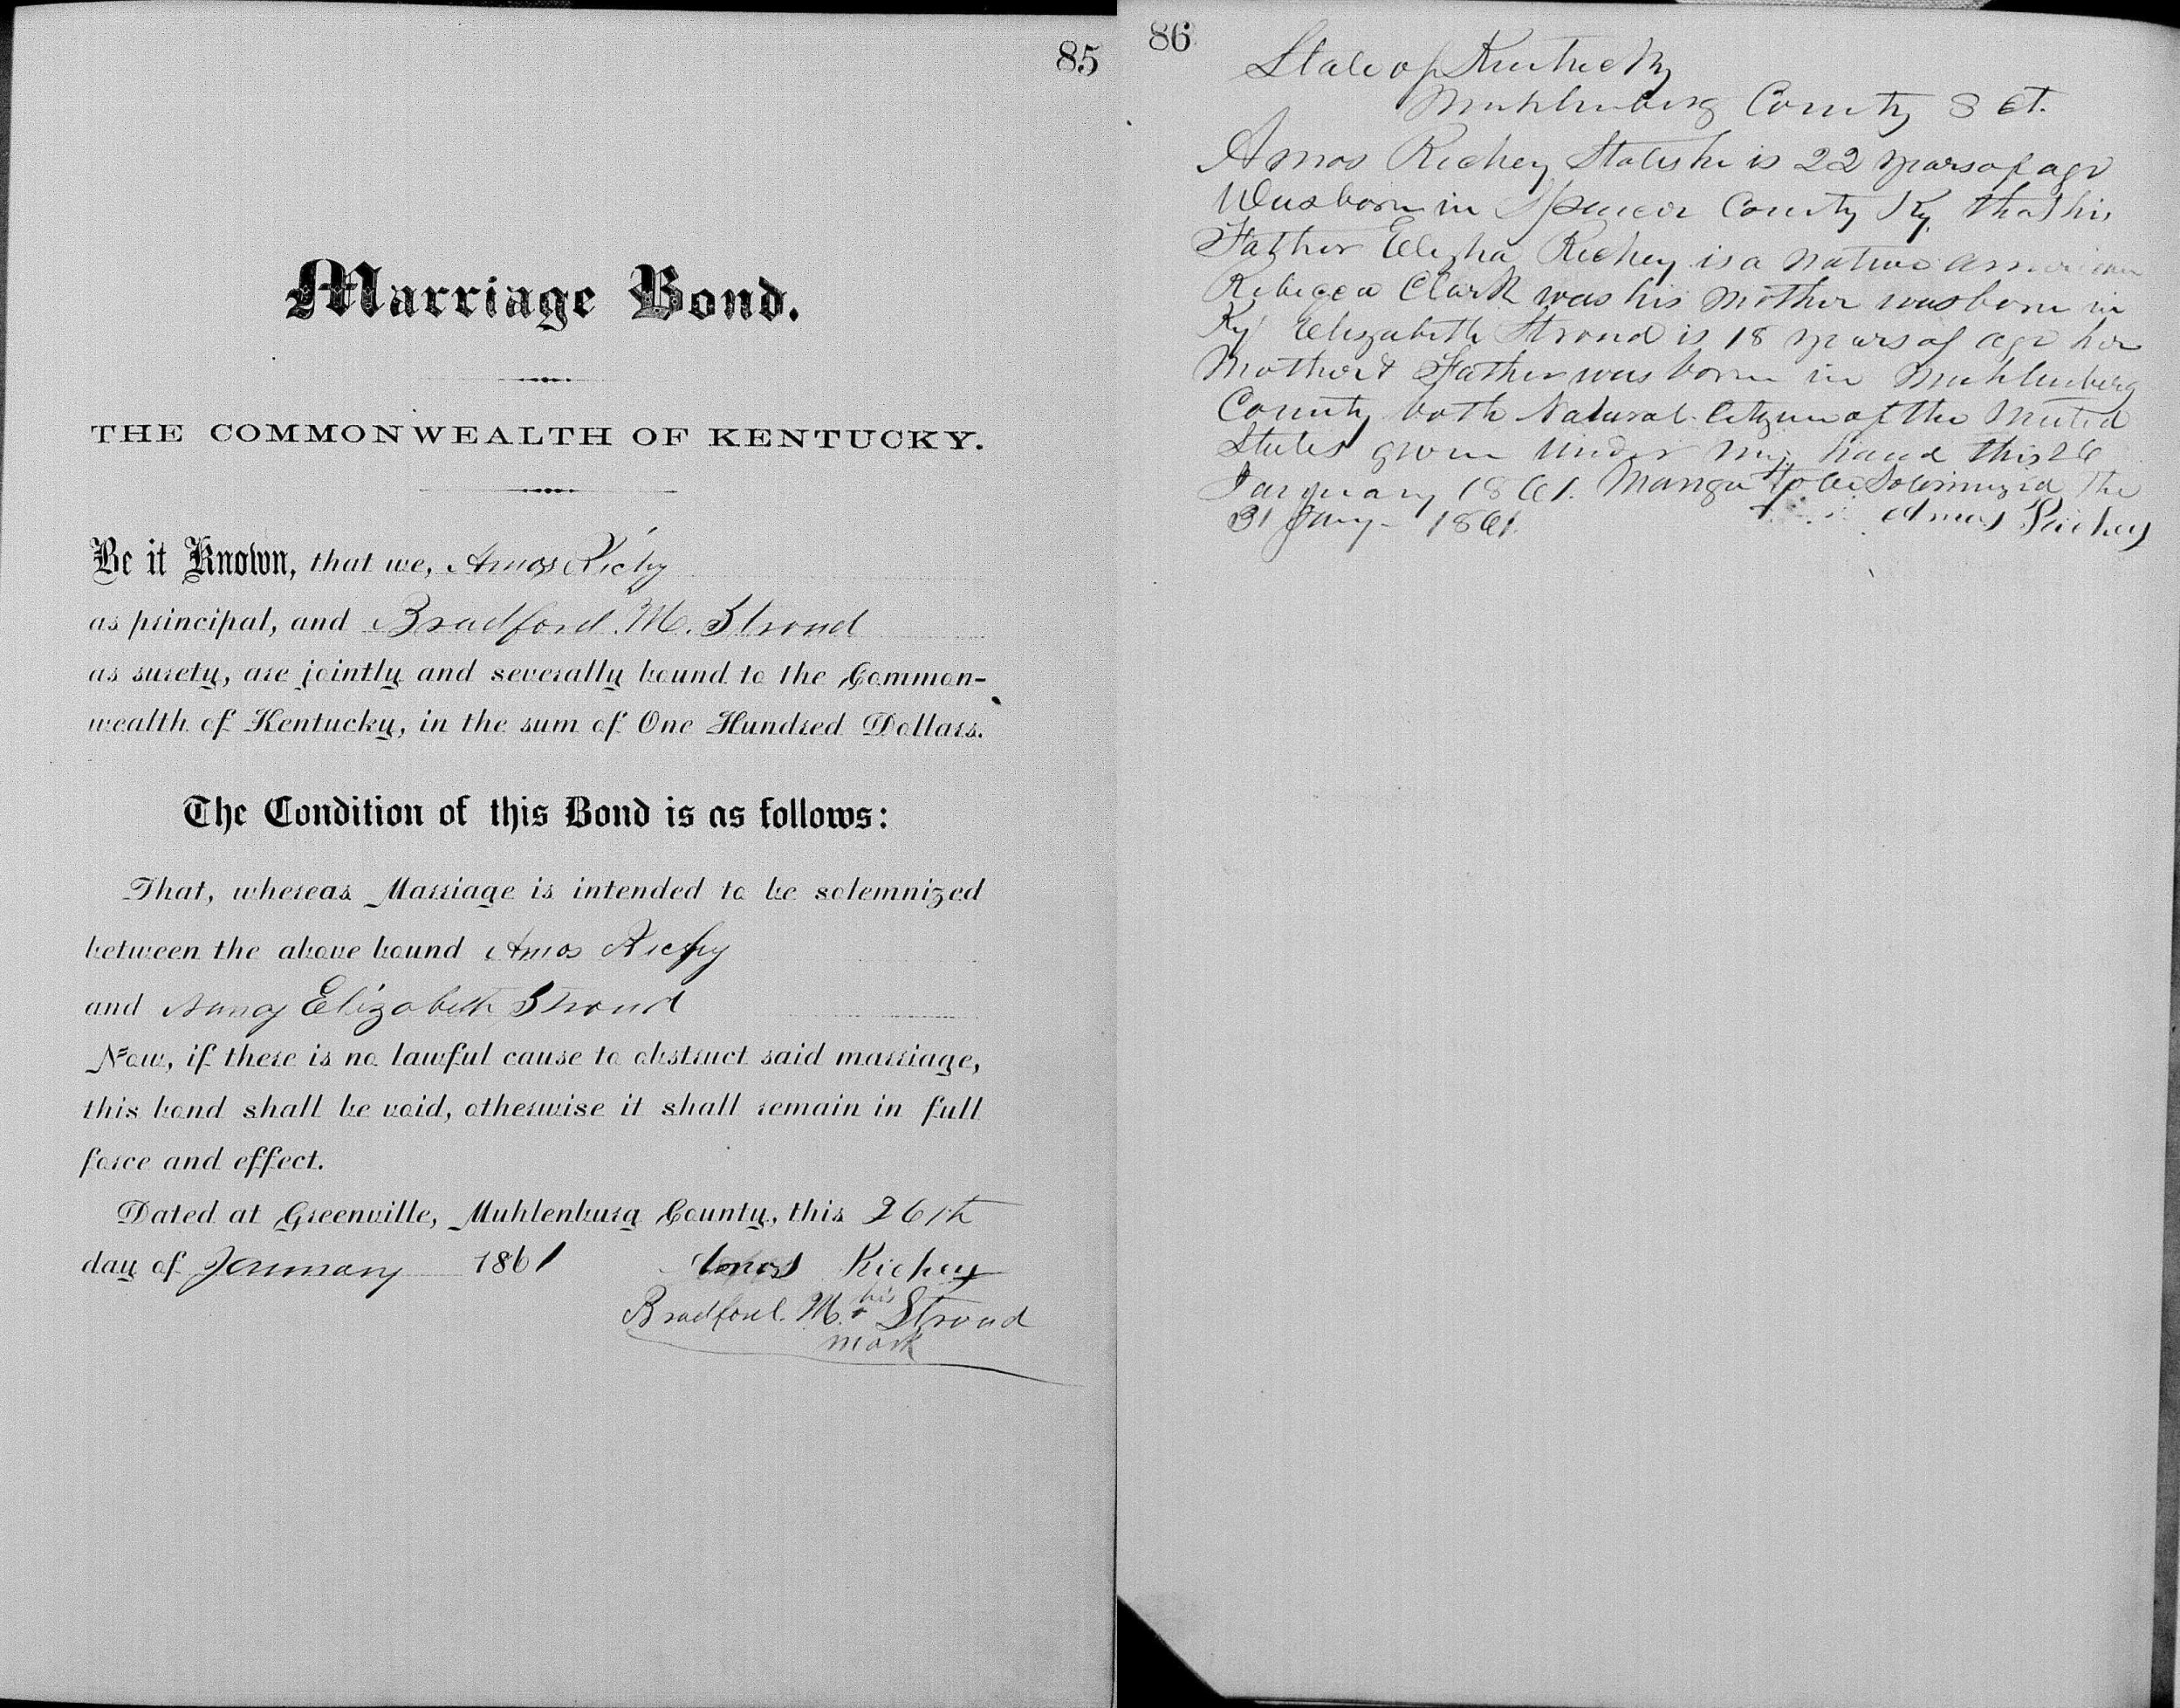 85
Marriage Bond.
THE COMMONWEALTH OF KENTUCKY.
Be it Known, that we, Amos Richy
as principal, and Bradford. M. Stroud
as surety, are jointly and severally bound to the Common-
wealth of Kentucky, in the sum of One Hundred Dollars.
The Condition of this Bond is as follows:
That, whereas Marriage is intended to be solemnized
between the above bound Amos Richy
and Nancy Elizabeth Stroud
Now, if there is no lawful cause to obstruct said marriage,
this bond shall be void, otherwise it shall remain in full
force and effect.
Dated at Greenville, Muhlenburg County, this 26th
day of January 1861 Amos Richey
his
Bradford. M. + Stroud
mark
86
State of Kentucky
Muhlenberg County Sct.
Amos Richey States he is 22 years of age
Was born in Spencer County Ky, that his
Father Elizha Richey is a native American
Rebecca Clark was his Mother was born in
Ky Elizabeth Stroud is 18 years of age her
Mother & Father was born in Muhlenberg
County both Natural Citizen of the United
States given under my hand this 26
January 1861. Marige to be Solemnized the
31 Jany- 1861. Amos Richey